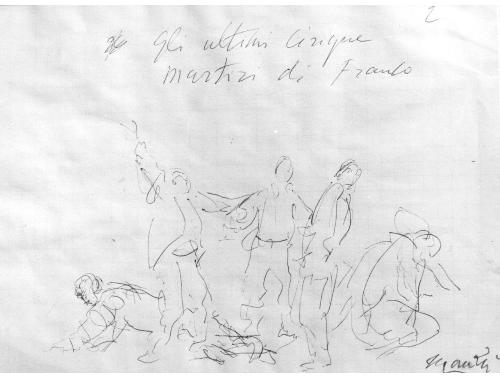 2
gli ultimi cinque
martiri di Franco